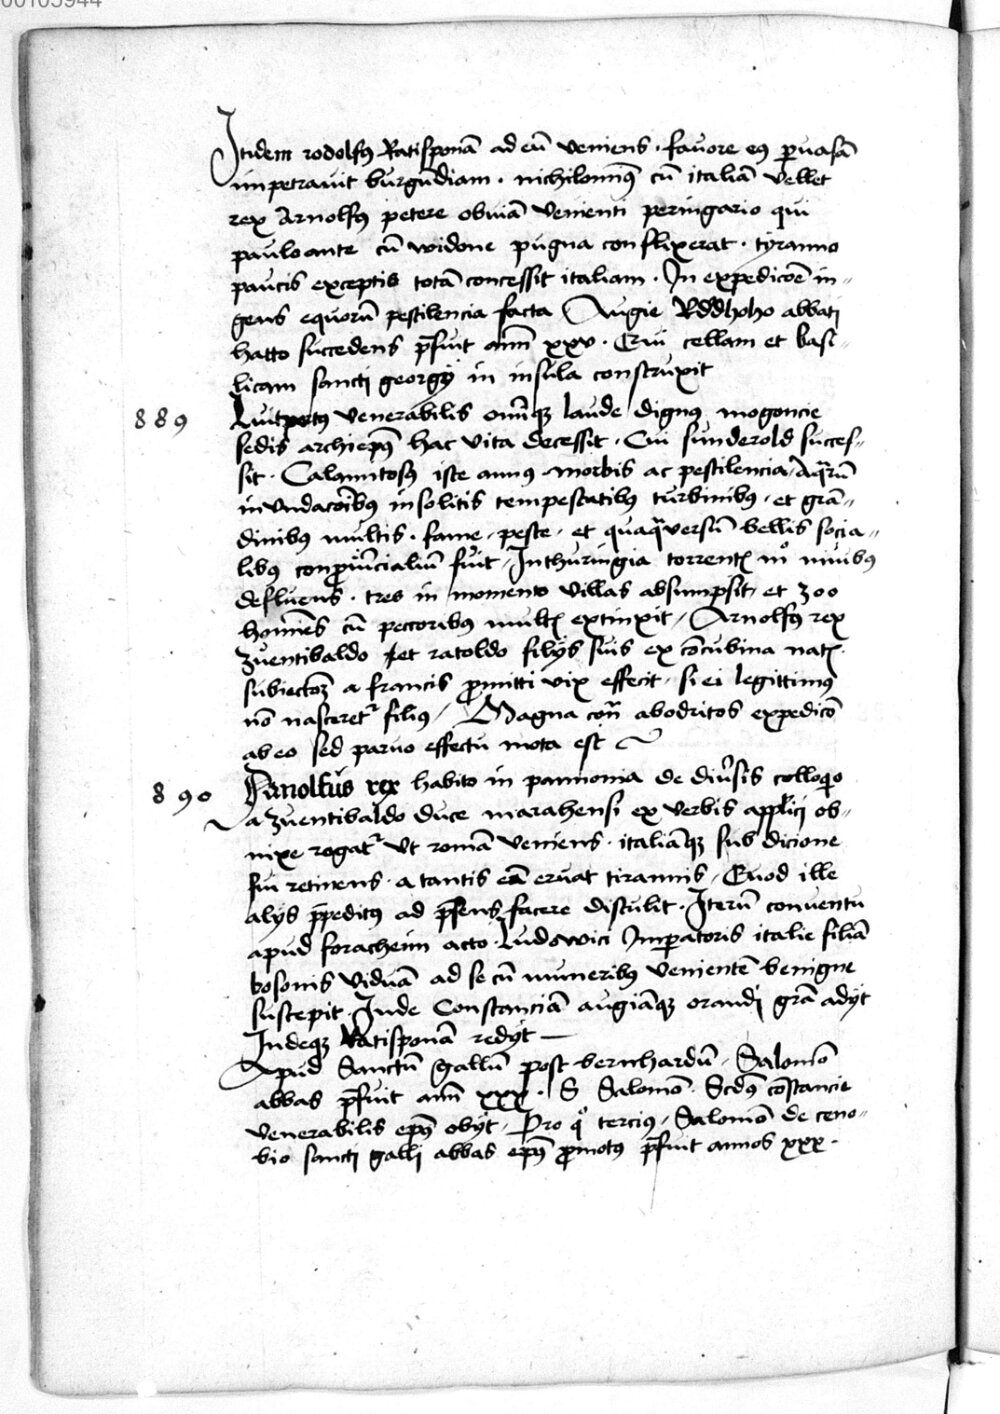 00105944
Itidem rodolfꝰ Ratisponā ad eū veniens · favore eiꝰ ꝑvasā
impetravit burgūdiam · nichilominꝰ cū italiā vellet
rex Arnolfꝰ petere obviā venienti peringario qui
pauloante cū widone pugna conflixerat · tyranno
paucis exceptis totā concessit italiam · In expedicōē in„
gens equorū pestilencia facta Augie Rddhoho abbati
hatto succedens p̄fuit ann̄ xxv · Qui cellam et basi„
licam sancti georgÿ in insula construxit
889 Luitpertꝰ venerabilis omīqꝫ laude dignꝰ mogoncie
sedis archiep̄ꝰ hac vita decessit · Cui sunderold succes„
sit · Calamitosꝰ iste annꝰ morbis ac pestilencia / Aq̄rū
inundacōibꝰ insolitis tempestatibꝰ turbinibꝰ · et grā„
dinibꝰ multis · fame · peste · et quaq̄versū bellis socia„
libꝰ conprovīncialiū fuit / In thuringia torrentꝭ mͦ nivibꝰ
defluens · tres in momento villas absumpsit · et 300
homīes cū peccoribꝰ multꝭ extinxit / Arnolfꝰ rex
Zuentibaldo et ratoldo filÿs suis ex cōcubina natꝭ ·
subiectōꝫ a francis ꝓmitti vix effecit · si ei legittimꝰ
nō nasceret᷑ filiꝰ / Magna con̄ abodritos expedicō
ab eo sed parvo effectu mota est
890 Arnolfus rex habito in pannonia de div̄sis colloqͦio
a Zuentibaldo duce marahensi ex verbis applici ob„
nixe rogat᷑ vt romā veniens · italiāqꝫ sub dicione
sui retinens · a tantis eā eruat tirannis / Quod ille
alÿs p̄peditꝰ ad p̄sens facere distulit · Iterū conventu
apud foracheim acto · Ludowici Imꝑatoris italie filiā
bosonis viduā ad se cū muneribꝰ venientē benigne
suscepit · Inde Constanciā augiāqꝫ orandi grā adÿt
Indeqꝫ Ratisponā redÿt —
Apud Sanctū Gallū post bernhardū / Salomō
abbas p̄fuit ann̄ xxx · S Salomō · Scdꝰ cōstancie
venerabilis ep̄ꝰ obÿt / Pro qͦ terciꝰ / Salomō de ceno„
bio sancti galli abbas ep̄ꝰ ꝓmotꝰ p̄fuit annos xxx ·